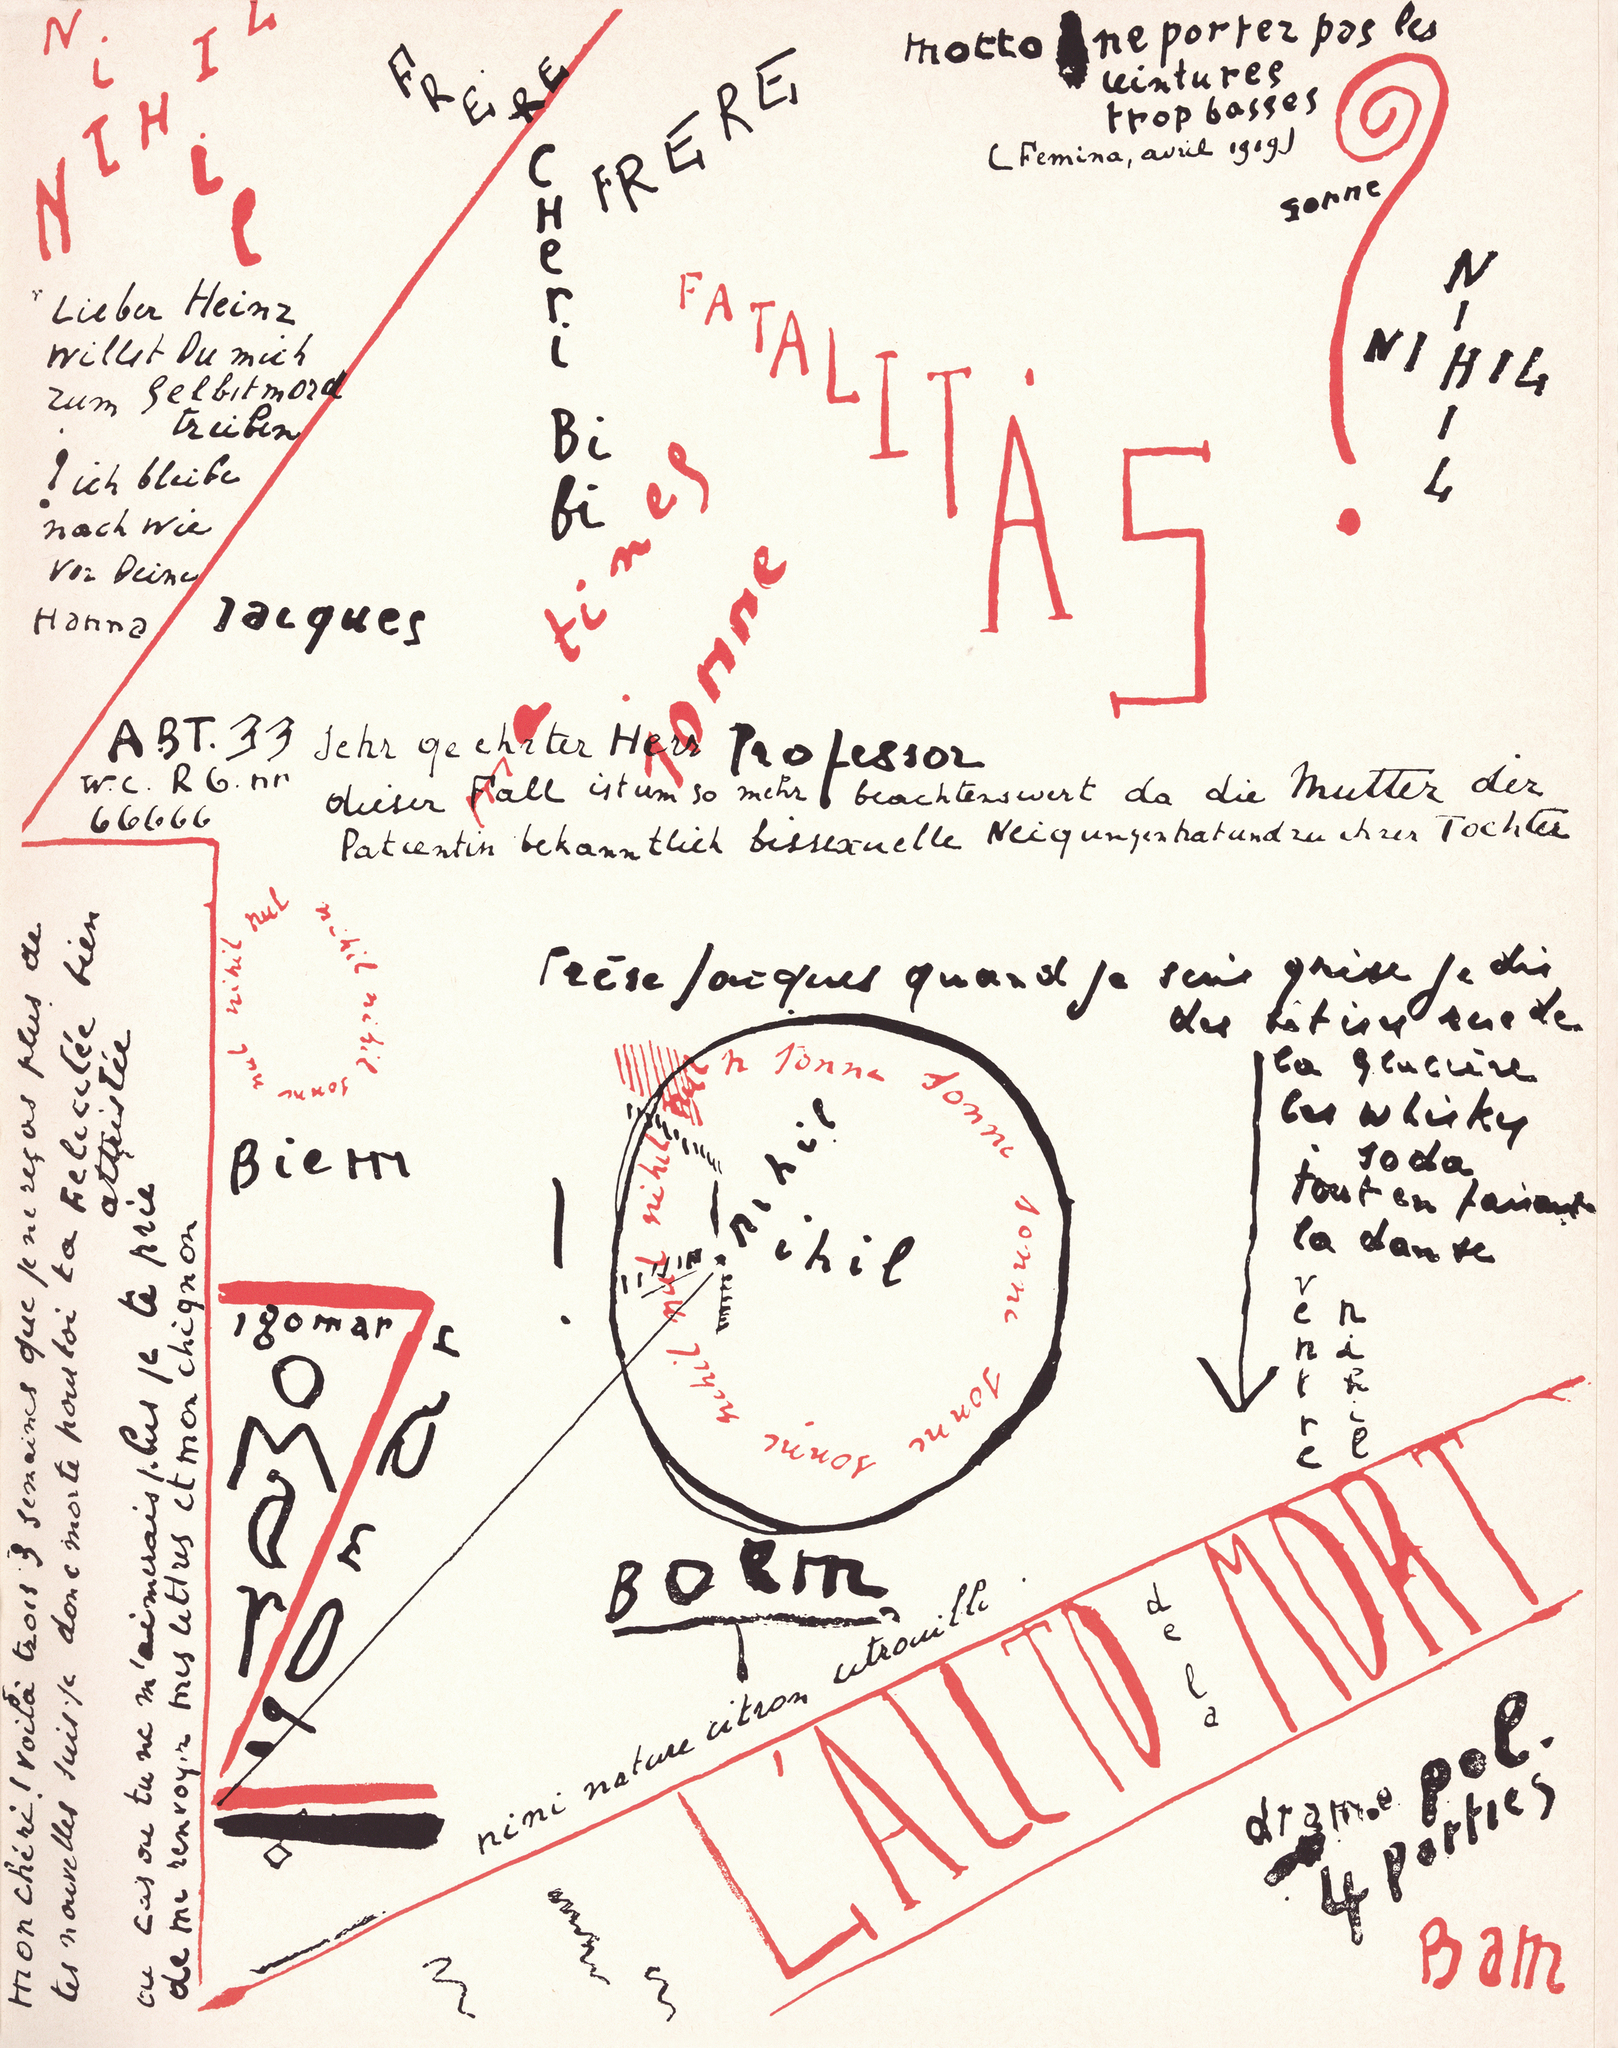 NiHIL
NIHil
FREiRE
FRERE
CHeri
Bi
bi
motto ne portez pas les
ceintures
trop basses
(Femina, avril 1919)
sonne
NIHIL
NIHIL
FATALITAS
Lieber Heinz
willst Du mich
zum Selbstmord
treiben
! ich bleibe
nach wie
vor Deine
Hanna
Jacques
tines
Tonne
ABT. 33
W.C. RG. nn
66666
Sehr geehrter Herr Professor
dieser Fall ist um so mehr beachtenswert da die Mutter der
Patientin bekanntlich bissexuelle Neigungen hat und zu ihrer Tochter
mon chéri! voilà trois 3 semaines que je ne reçois plus de
tes nouvelles suis-je donc morte pour toi ta Félicitée bien
attristée
au cas ou tu ne m'aimerais plus je te prie
de me renvoyer mes lettres et mon chignon
nul nihil nul
nihil nihil
sonne
Biem
!
Frése Jacques quand je suis grise je dis
des bêtises rue de
la glacière
les whisky
soda
tout en faisant
la danse
ventre
nihil
sonne sonne sonne sonne sonne
nihil nul nihil nul
nihil
ihil
BOEM
Zgomar
ZOMar
zgomar
nini nature citron citrouille
L'ALLTO
de la
MORT
drame pol.
4 parties
Bam